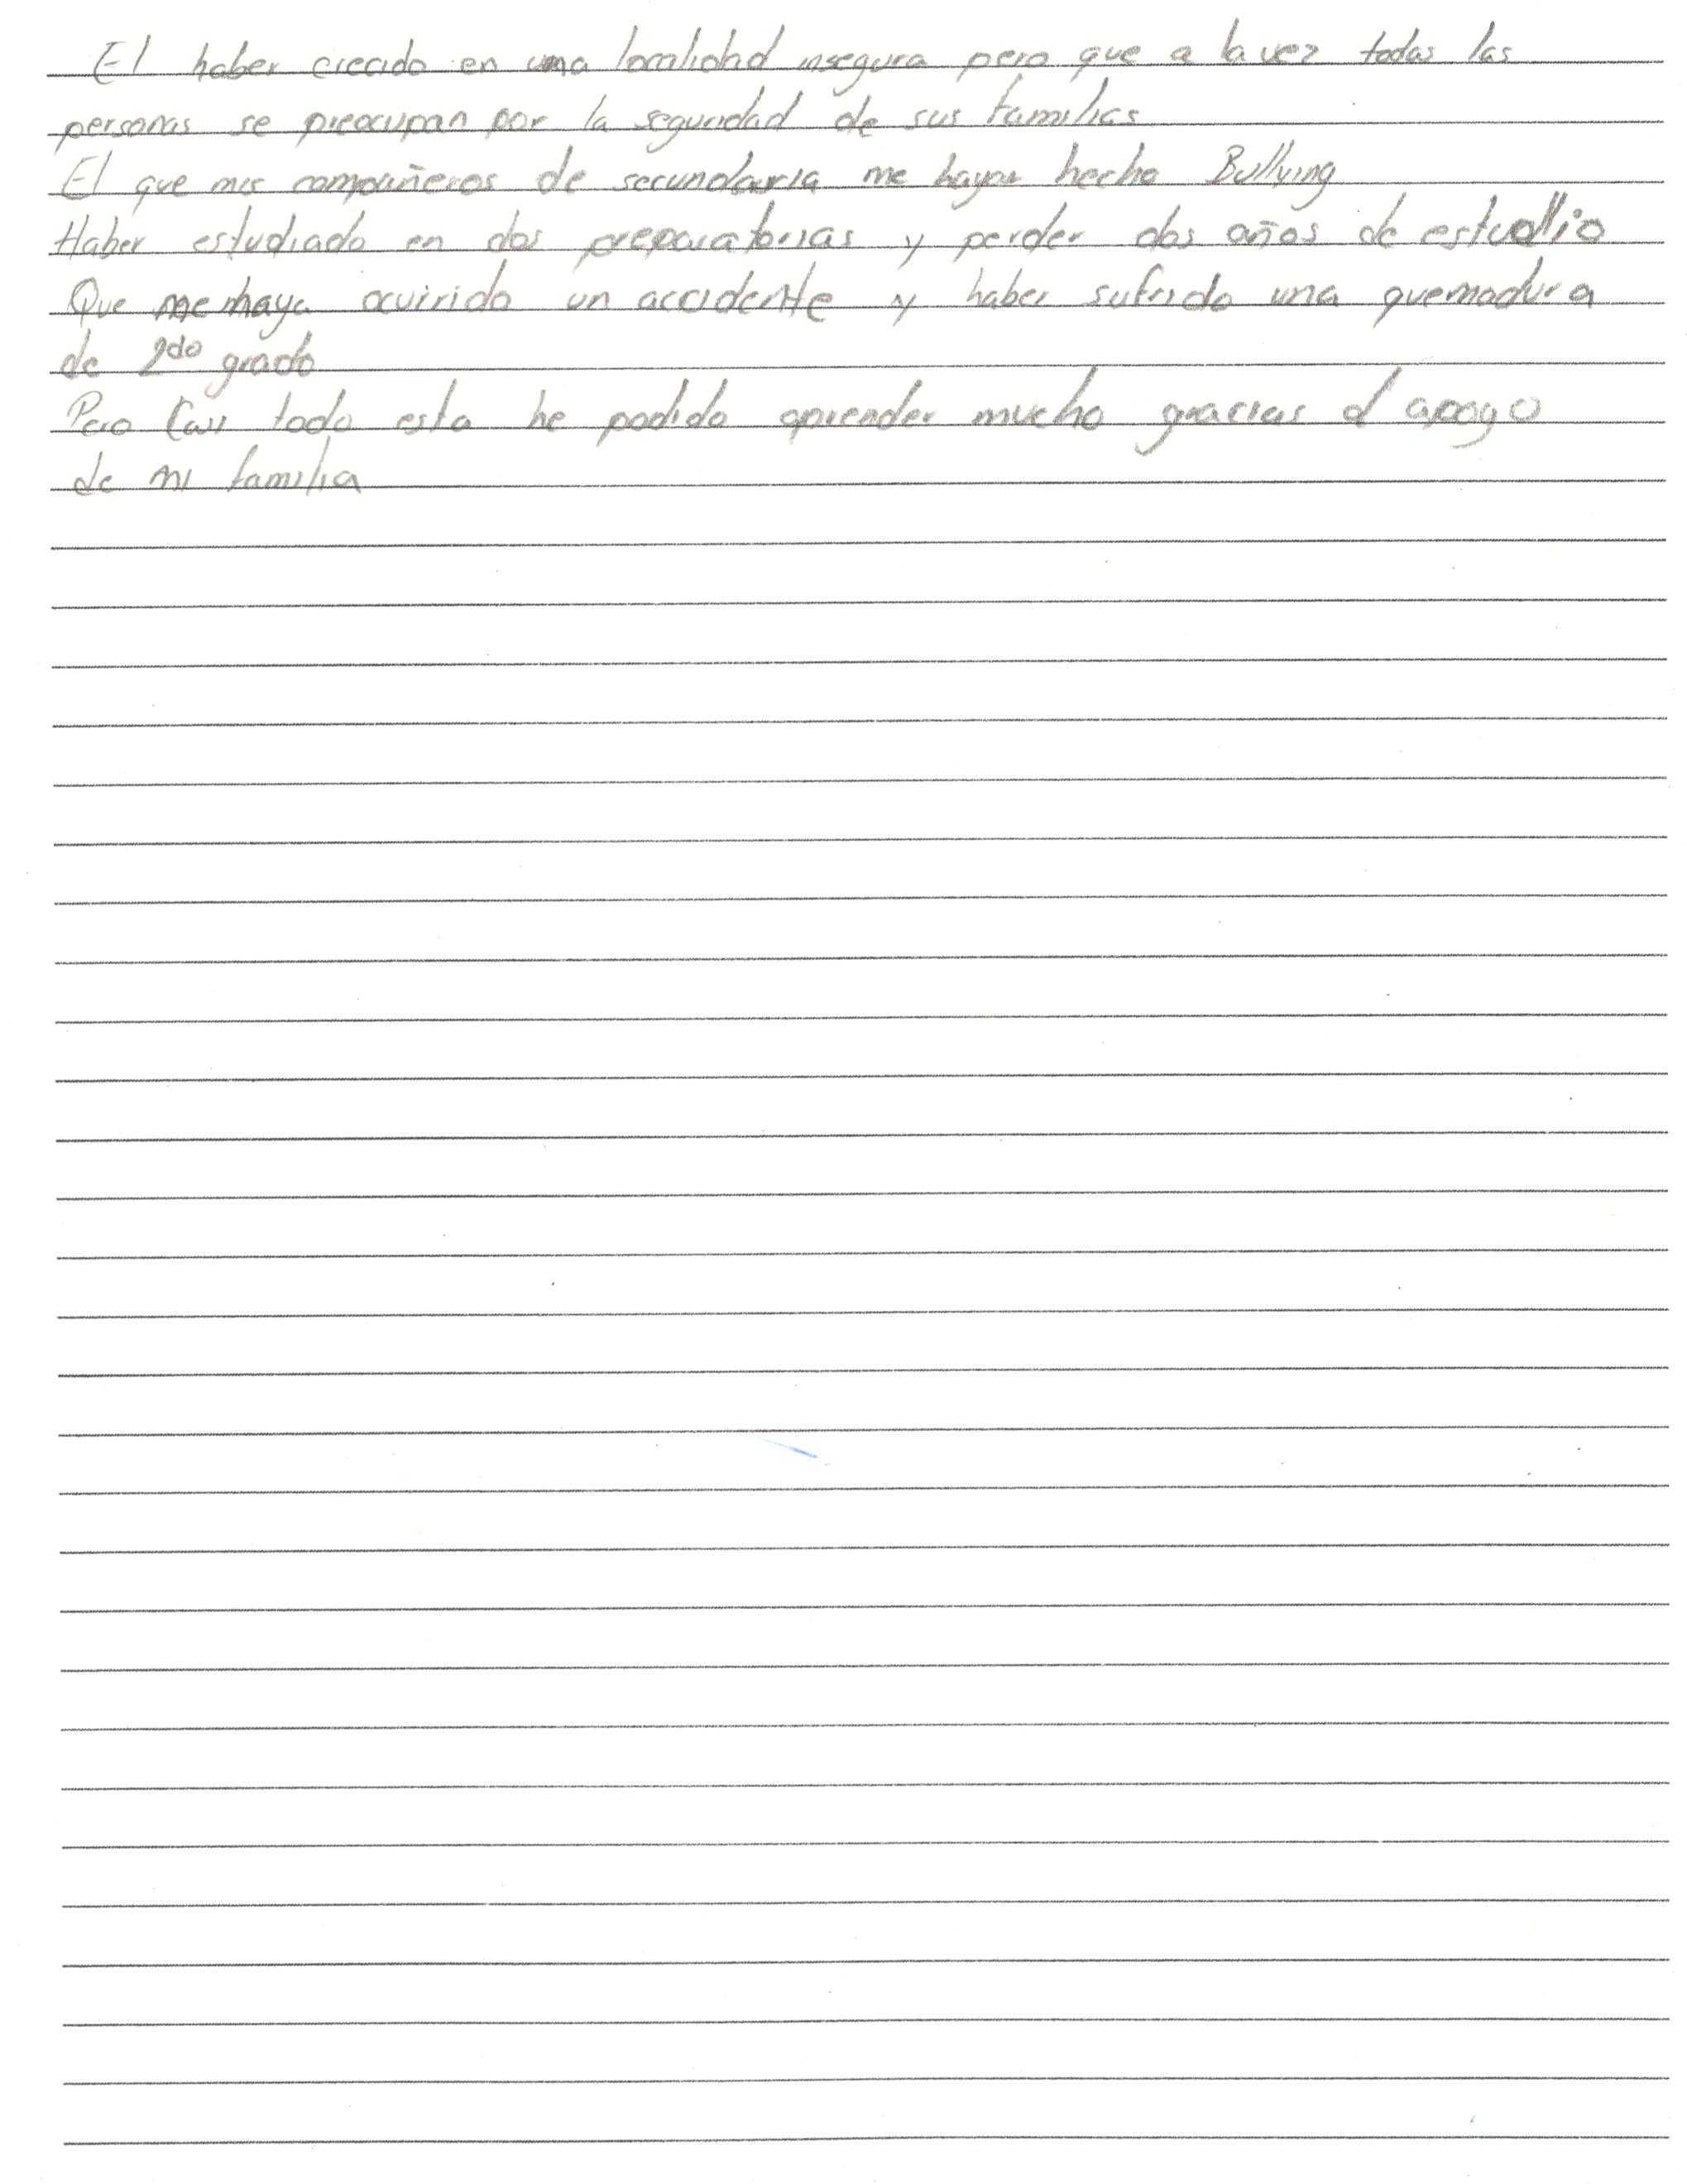 El haber crecido en una localidad insegura pero que a la vez todas las
personas se preocupan por la seguridad de sus familias
El que mis compañeros de secundaria me hayan hecho Bullying
Haber estudiado en dos preparatorias y perder dos años de estudio
Que me haya ocurrido un accidente y haber sufrido una quemadura
de 2do grado
Pero con todo esto he podido aprender mucho gracias al apoyo
de mi familia